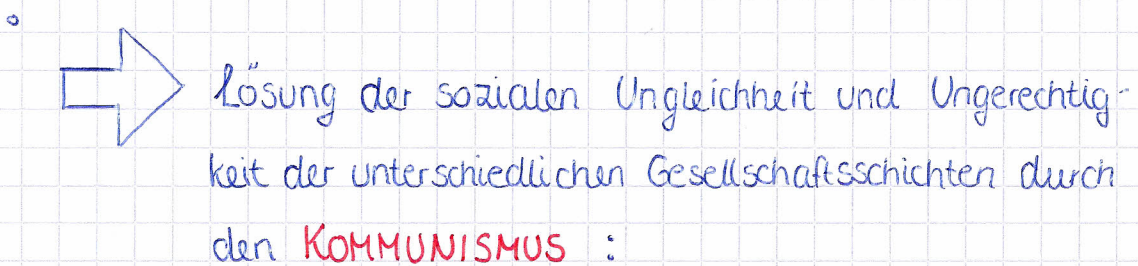 Lösung der sozialen Ungleichheit und Ungerechtig-
keit der unterschiedlichen Gesellschaftsschichten durch
den KOMMUNISMUS :